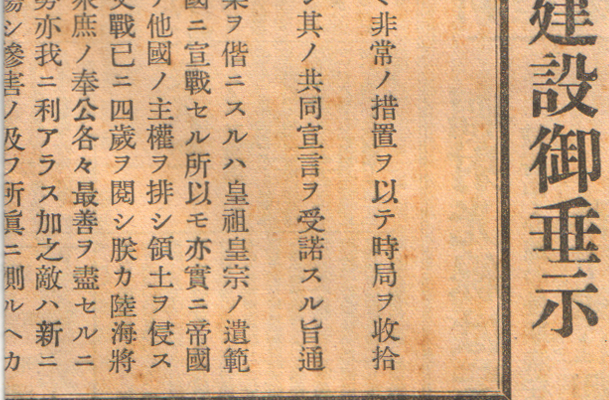 建設御垂示
非常ノ措置ヲ以テ時局ヲ收拾
シ其ノ共同宣言ヲ受諾スル旨通
樂ヲ偕ニスルハ皇祖皇宗ノ遺範
國ニ宣戰セル所以モ亦實ニ帝國
他國ノ主權ヲ排シ領土ヲ侵ス
交戰已ニ四歲ヲ閲シ朕カ陸海將
衆庶ノ奉公各々最善ヲ盡セルニ
勢亦我ニ利アラス加之敵ハ新ニ
傷シ慘害ノ及フ所眞ニ測ルヘカ